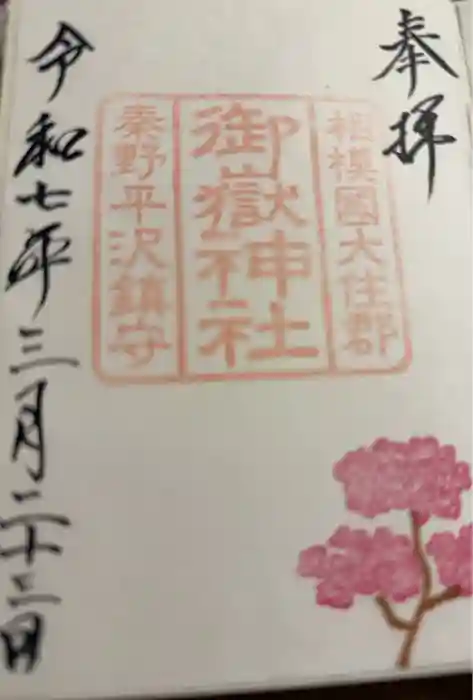 奉拝
相模國大住郡
御嶽神社
秦野平沢鎮守
令和七年三月二十三日